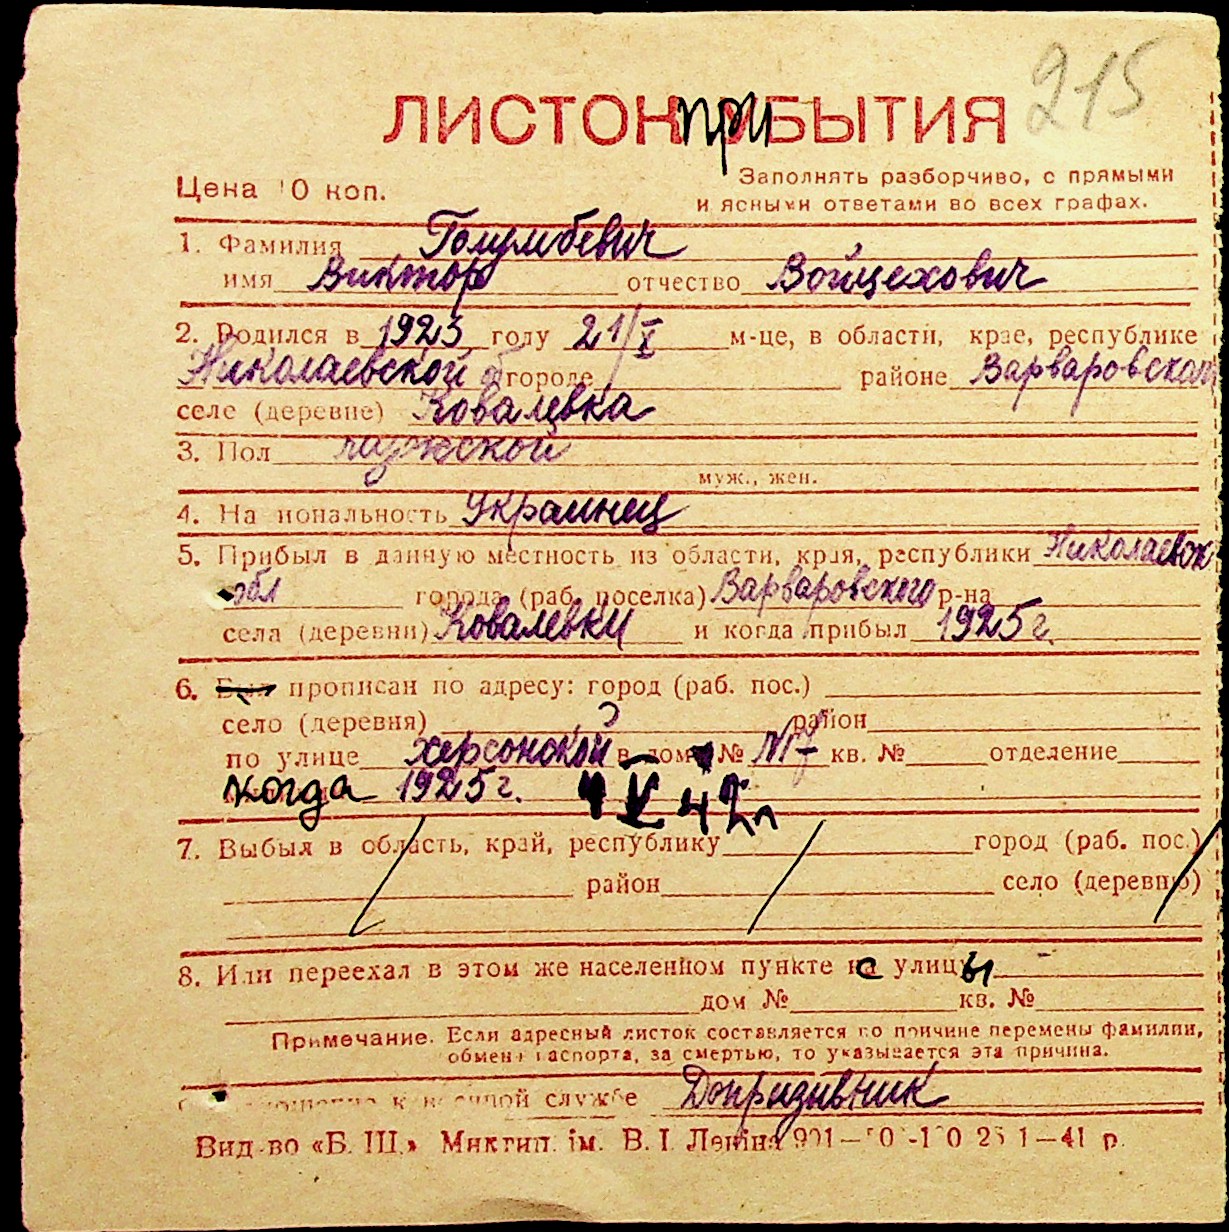 215
ЛИСТОК при БЫТИЯ
Цена 10 коп.
Заполнять разборчиво, с прямыми
и ясными ответами во всех графах.
1. Фамилия Голумбевич
имя Виктор отчество Войцехович
2. Родился в 1923 году 21/X м-це, в области, крае, республике
Николаевской об городе районе Варваровском
селе (деревне) Ковалевка
3. Пол мужской
муж., жен.
4. Национальность Украинец
5. Прибыл в данную местность из области, края, республики Николаевск
обл города (раб. поселка) Варваровского р-на
села (деревни) Ковалевки и когда прибыл 1925 г.
6. Был прописан по адресу: город (раб. пос.)
село (деревня) район
по улице херсонской в дом № N7 кв. № отделение
когда 1925 г. 4 V 42 г
7. Выбыл в область, край, республику город (раб. пос.)
район село (деревню)
8. Или переехал в этом же населенном пункте с улицы
дом № кв. №
Примечание. Если адресный листок составляется по причине перемены фамилии,
обмена паспорта, за смертью, то указывается эта причина.
к военной службе Допризывник
Вид-во «Б. Ш.» Микгип. ім. В. І. Леніна 1—41 р.